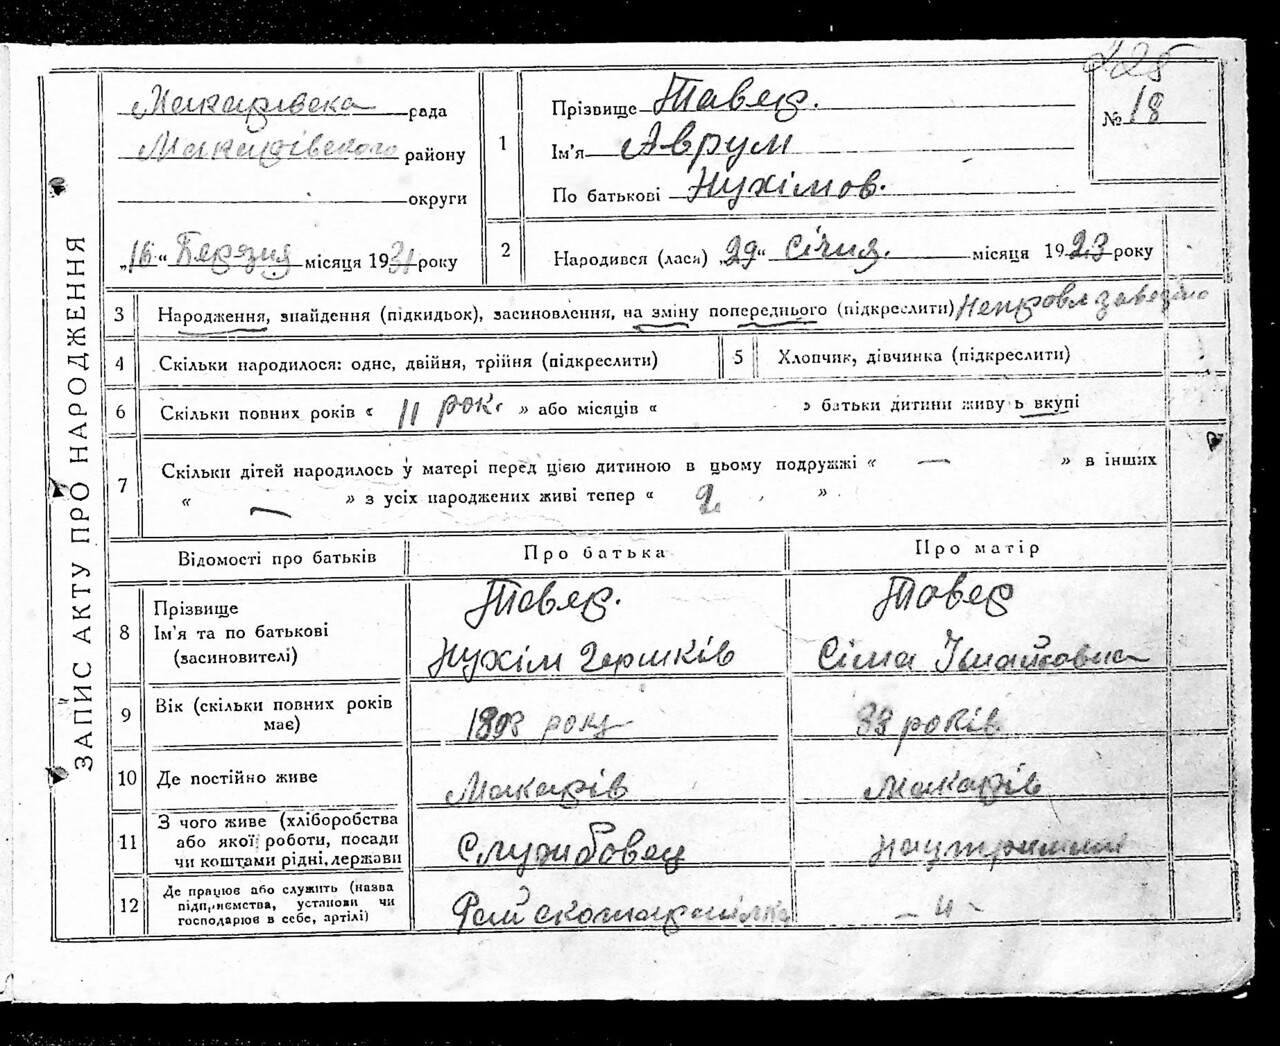 425
Макарівська рада
Макарівського району
округи
„16“ Березня місяця 1931 року
1
Прізвище Тавер.
Ім'я Аврум
По батькові Нухімов.
№ 18
2
Народився (лася) „29“ Січня. місяця 1923 року
ЗАПИС АКТУ ПРО НАРОДЖЕННЯ
3 Народження, знайдення (підкидьок), засиновлення, на зміну попереднього (підкреслити)
4 Скільки народилося: одне, двійня, трійня (підкреслити)
5 Хлопчик, дівчинка (підкреслити)
6 Скільки повних років « 11 рок. » або місяців « » батьки дитини живуть вкупі
7 Скільки дітей народилось у матері перед цією дитиною в цьому подружжі « — » в інших
« — » з усіх народжених живі тепер « 2 » .
Відомості про батьків
Про батька
Про матір
8
Прізвище
Ім'я та по батькові
(засиновителі)
Тавер.
Нухім Гершків
Тавер
Сіма
9
Вік (скільки повних років
має)
1898 року
33 років
10 Де постійно живе
Макарів
Макарів
11
З чого живе (хліборобства
або якої роботи, посади
чи коштами рідні, держави
Службовец
12
Де працює або служить (назва
підприємства, установи чи
господарює в себе, артілі)
- " -